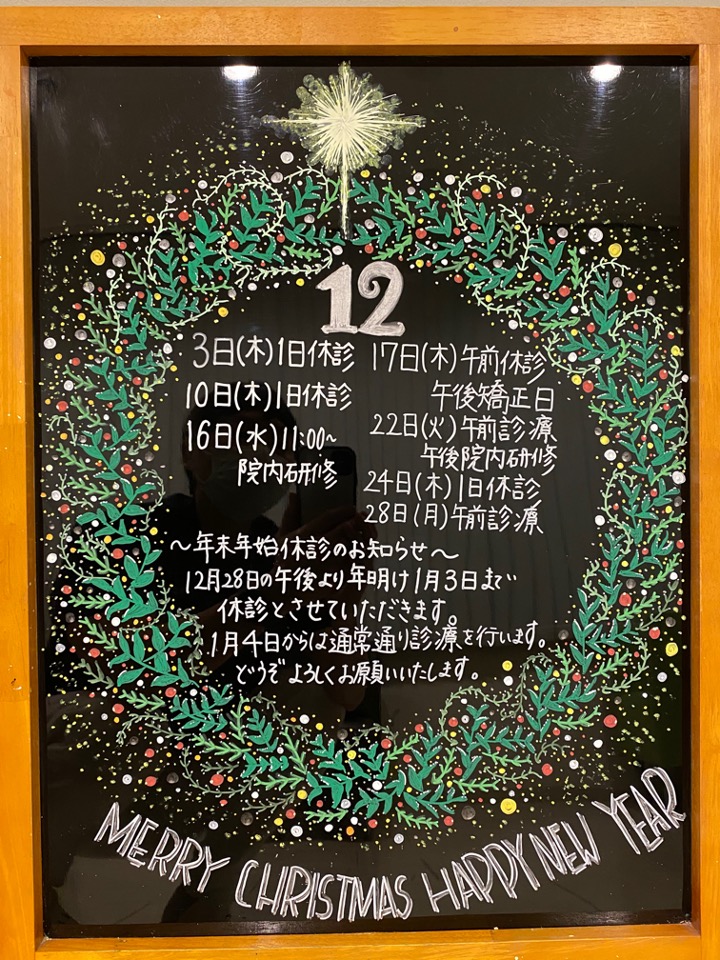 12
3日(木)1日休診
10日(木)1日休診
16日(水)11:00~
院内研修
17日(木)午前休診
午後矯正日
22日(火)午前診療
午後院内研修
24日(木)1日休診
28日(月)午前診療
～年末年始休診のお知らせ～
12月28日の午後より年明け1月3日まで
休診とさせていただきます。
1月4日からは通常通り診療を行います。
どうぞよろしくお願いいたします。
MERRY CHRISTMAS HAPPY NEW YEAR